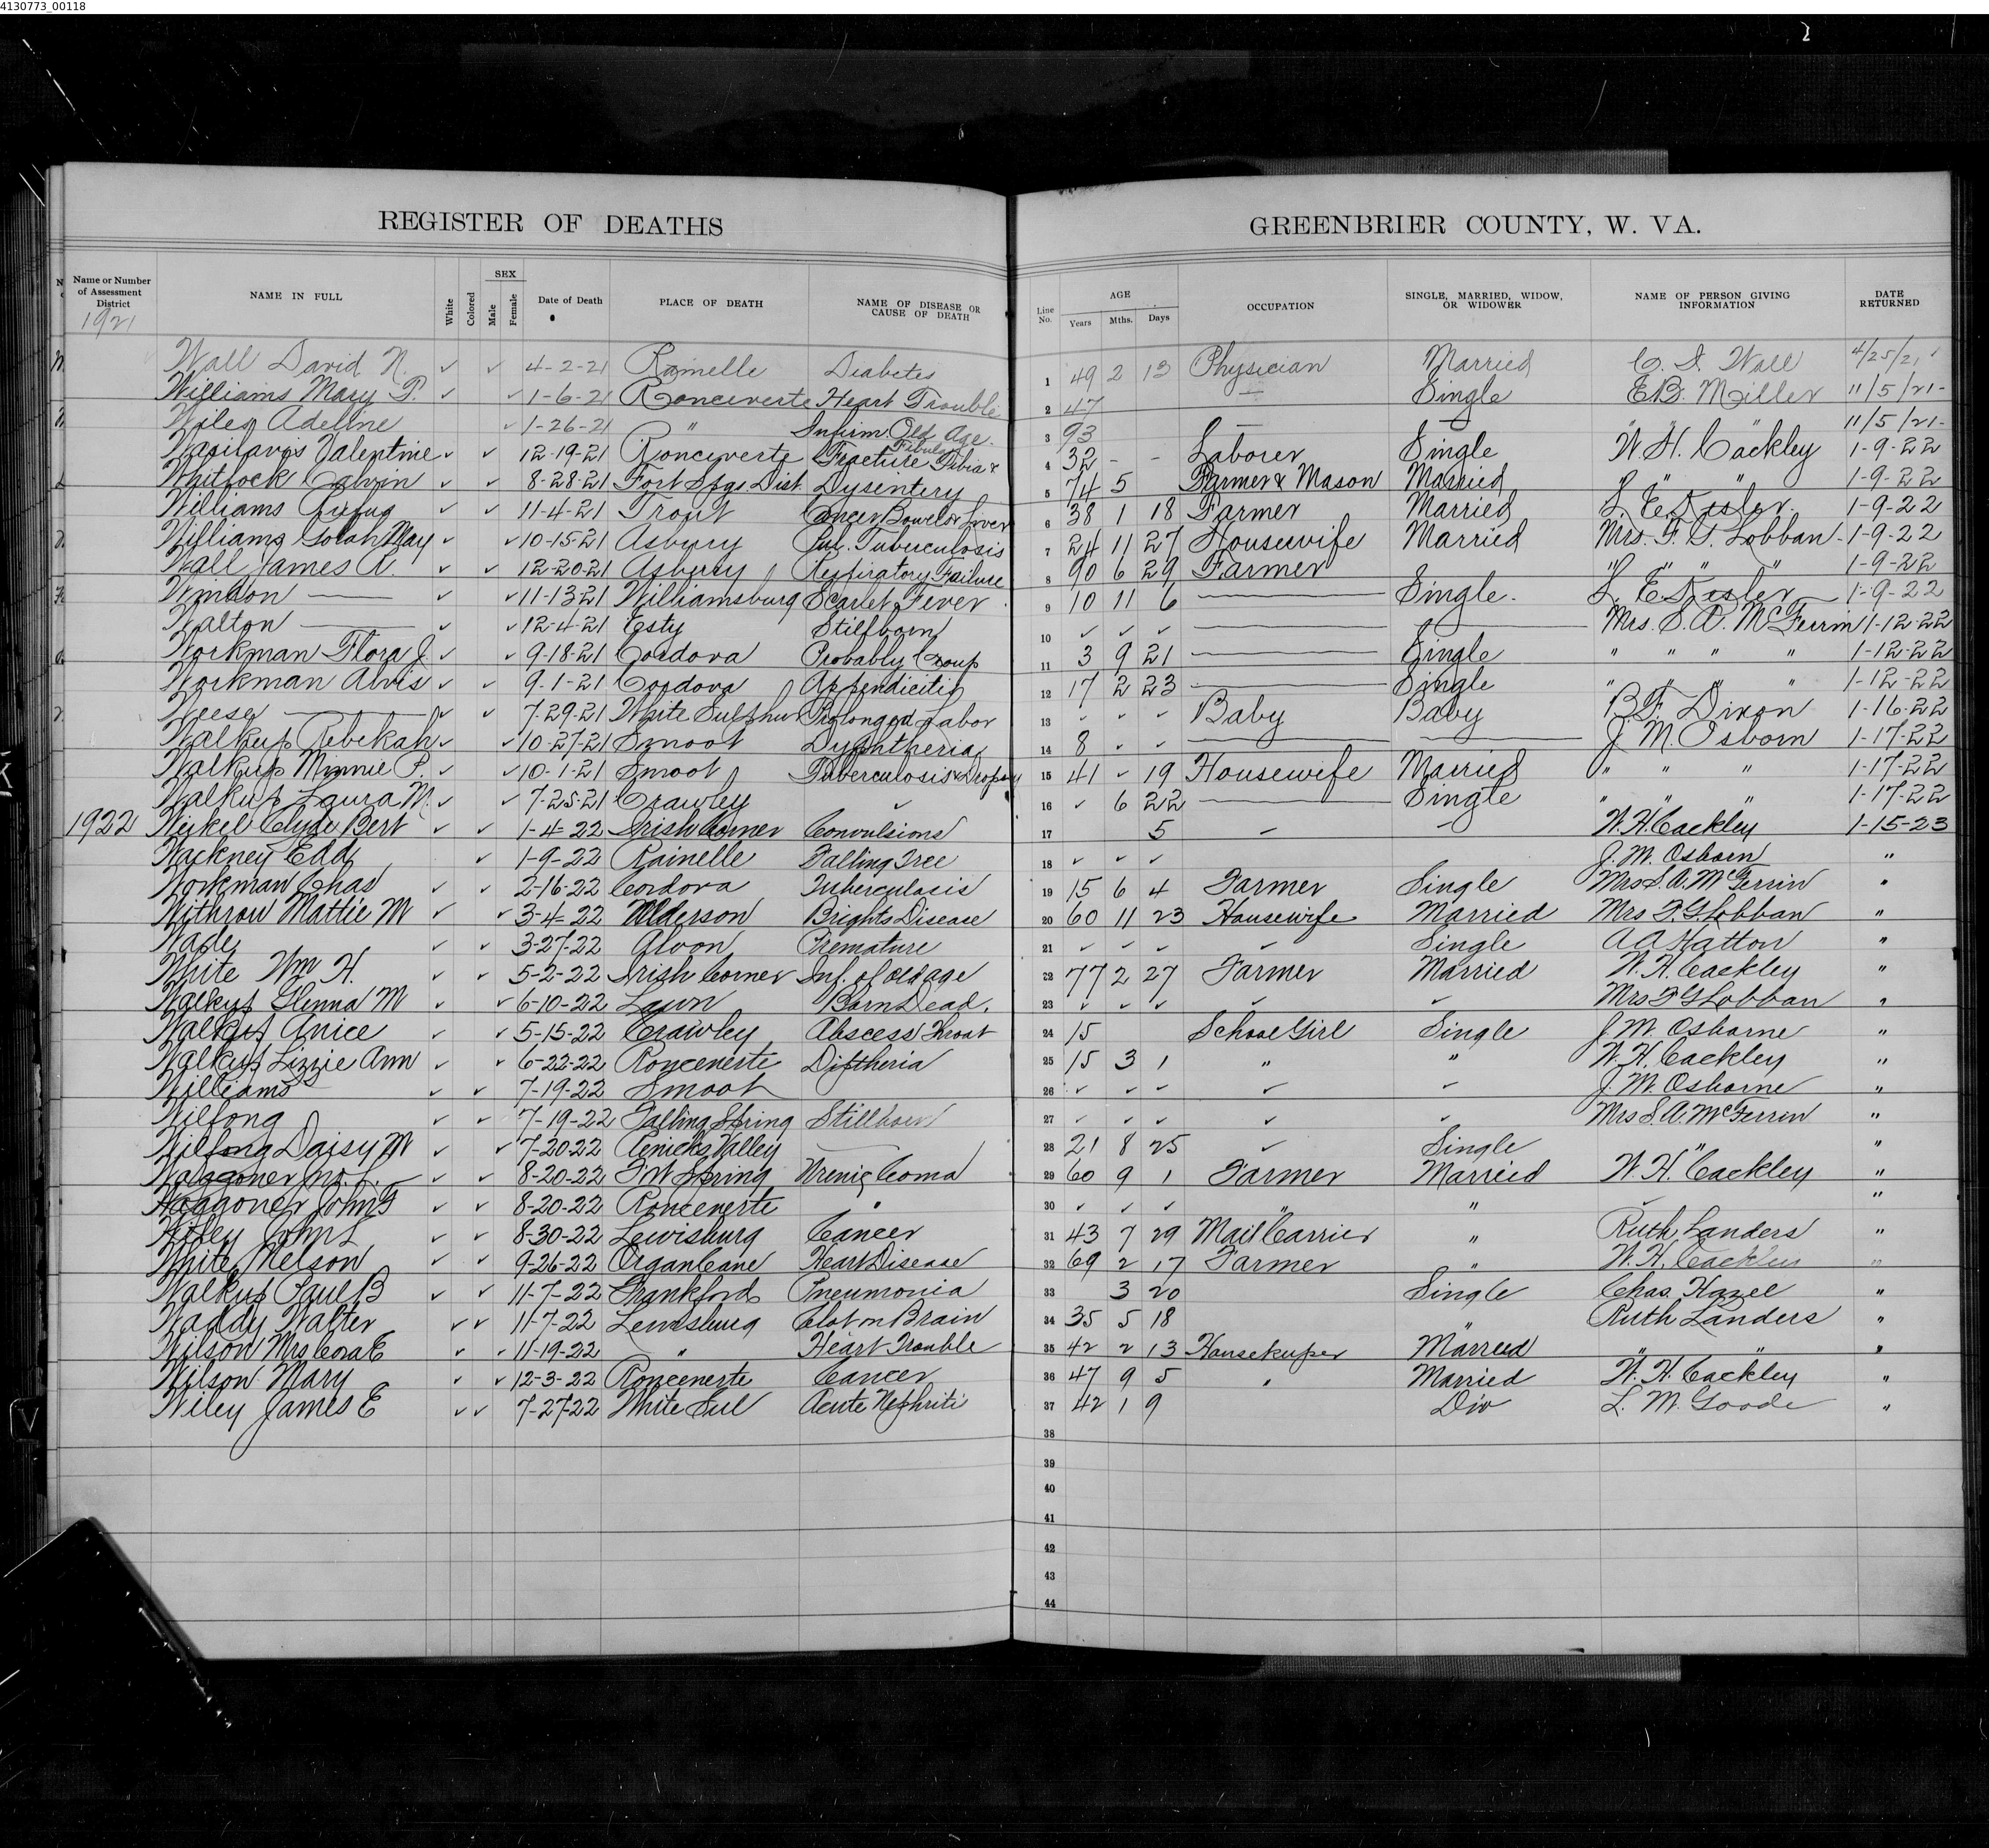 4130773_00118
REGISTER OF DEATHS
GREENBRIER COUNTY, W. VA.
Name or Number of Assessment District
NAME IN FULL
White
Colored
SEX
Male
Female
Date of Death
PLACE OF DEATH
NAME OF DISEASE OR CAUSE OF DEATH
Line No.
AGE
Years Mths. Days
OCCUPATION
SINGLE, MARRIED, WIDOW, OR WIDOWER
NAME OF PERSON GIVING INFORMATION
DATE RETURNED
1921
Wall David N. ✓ ✓ 4-2-21 Rainelle Diabetes 1 49 2 13 Physician Married Wall 4/25/21
Williams Mary P. ✓ ✓ 1-6-21 Ronceverte Heart Trouble 2 47 — Single E.B. Miller 11/5/21-
Wiley Adeline ✓ 1-26-21 " Infirm. Old Age. 3 93 — " " 11/5/21-
Valentine ✓ ✓ 12-19-21 Ronceverte Fracture Tibia & Fibula 4 32 - - Laborer Single W. H. Cackley 1-9-22
Whitlock Calvin ✓ ✓ 8-28-21 Fort Spgs Dist. Dysentery 5 74 5 Farmer & Mason Married " " " 1-9-22
Williams Rufus ✓ ✓ 11-4-21 Trout Cancer Bowel or Liver 6 38 1 18 Farmer Married L. E. Kisler 1-9-22
Williams Golah May ✓ ✓ 10-15-21 Asbury Pul. Tuberculosis 7 24 11 27 Housewife Married Mrs. F. G. Lobban - 1-9-22
Wall James A. ✓ ✓ 12-20-21 Asbury Respiratory Failure 8 90 6 29 Farmer " " " " 1-9-22
— ✓ ✓ 11-13-21 Williamsburg Scarlet Fever 9 10 11 6 — Single. L. E. Kisler 1-9-22
Walton — ✓ ✓ 12-4-21 Esty Stillborn 10 ✓ ✓ ✓ — — Mrs. S. A. McFerrin 1-12-22
Workman Flora J. ✓ ✓ 9-18-21 Cordova Probably Croup 11 3 9 21 — Single " " " " 1-12-22
Workman Alvis ✓ ✓ 9-1-21 Cordova Appendicitis 12 17 2 23 — Single " " " " 1-12-22
Weese — ✓ ✓ 7-29-21 White Sulphur Prolonged Labor 13 ✓ ✓ ✓ Baby Baby B.F. Dixon 1-16-22
Walkup Rebekah ✓ ✓ 10-27-21 Smoot Dyphtheria 14 8 ✓ ✓ — — J. M. Osborn 1-17-22
Walkup Minnie P. ✓ ✓ 10-1-21 Smoot Tuberculosis & Dropsy 15 41 ✓ 19 Housewife Married " " " 1-17-22
Walkup Laura M. ✓ ✓ 7-25-21 Crawley ✓ 16 ✓ 6 22 — Single " " " 1-17-22
1922 Weikel Clyde Bert ✓ ✓ 1-4-22 Irish Corner Convulsions 17 5 ✓ ✓ W. H. Cackley 1-15-23
Wackney Edd ✓ 1-9-22 Rainelle Falling Tree 18 ✓ ✓ ✓ J. M. Osborn "
Workman Chas ✓ ✓ 2-16-22 Cordova Tuberculasis 19 15 6 4 Farmer Single Mrs S. A. McFerrin "
Withrow Mattie M ✓ ✓ 3-4-22 Alderson Brights Disease 20 60 11 23 Housewife Married Mrs F G Lobban "
Wade ✓ ✓ 3-27-22 Alvon Premature 21 ✓ ✓ ✓ ✓ Single A A Hatton "
White Wm H. ✓ ✓ 5-2-22 Irish Corner Inf. of old age 22 77 2 27 Farmer Married W. H. Cackley "
Walkup Glenna M ✓ ✓ 6-10-22 Lawn Born Dead. 23 ✓ ✓ ✓ ✓ ✓ Mrs F G Lobban "
Walkup Anice ✓ ✓ 5-15-22 Crawley Abscess Throat 24 15 School Girl Single J. M. Osborne "
Walkup Lizzie Ann ✓ ✓ 6-22-22 Ronceverte Diptheria 25 15 3 1 " " W. H. Cackley "
Williams ✓ ✓ 7-19-22 Smoot 26 ✓ ✓ ✓ ✓ ✓ J. M. Osborne "
Wilfong ✓ ✓ 7-19-22 Falling Spring Stillborn 27 ✓ ✓ ✓ ✓ ✓ Mrs S. A. McFerrin "
Wilfong Daisy M ✓ ✓ 7-20-22 Renicks Valley — 28 21 8 25 ✓ Single " "
Waggoner Jno. L. ✓ ✓ 8-20-22 Ft Spring Uremic Coma 29 60 9 1 Farmer Married W. H. Cackley "
Waggoner John S ✓ ✓ 8-20-22 Ronceverte " 30 ✓ ✓ ✓ " " ✓ "
Wiley John L ✓ ✓ 8-30-22 Lewisburg Cancer 31 43 7 29 Mail Carrier " Ruth Landers "
White Nelson ✓ ✓ 9-26-22 Organ Cave Heart Disease 32 69 2 17 Farmer " W. H. Cackley "
Walkup Paul B ✓ ✓ 11-7-22 Frankford Pneumonia 33 3 20 Single Chas. Hazel "
Waddy Walter ✓ ✓ 11-7-22 Lewisburg Clot on Brain 34 35 5 18 " Ruth Landers "
Wilson Mrs Cora E ✓ ✓ 11-19-22 " Heart Trouble 35 42 2 13 Housekeeper Married " " "
Wilson Mary ✓ ✓ 12-3-22 Ronceverte Cancer 36 47 9 5 " Married W. H. Cackley "
Wiley James E ✓ ✓ 7-27-22 White Sul Acute Nephriti 37 42 1 9 Div L. M. Goode "
38
39
40
41
42
43
44